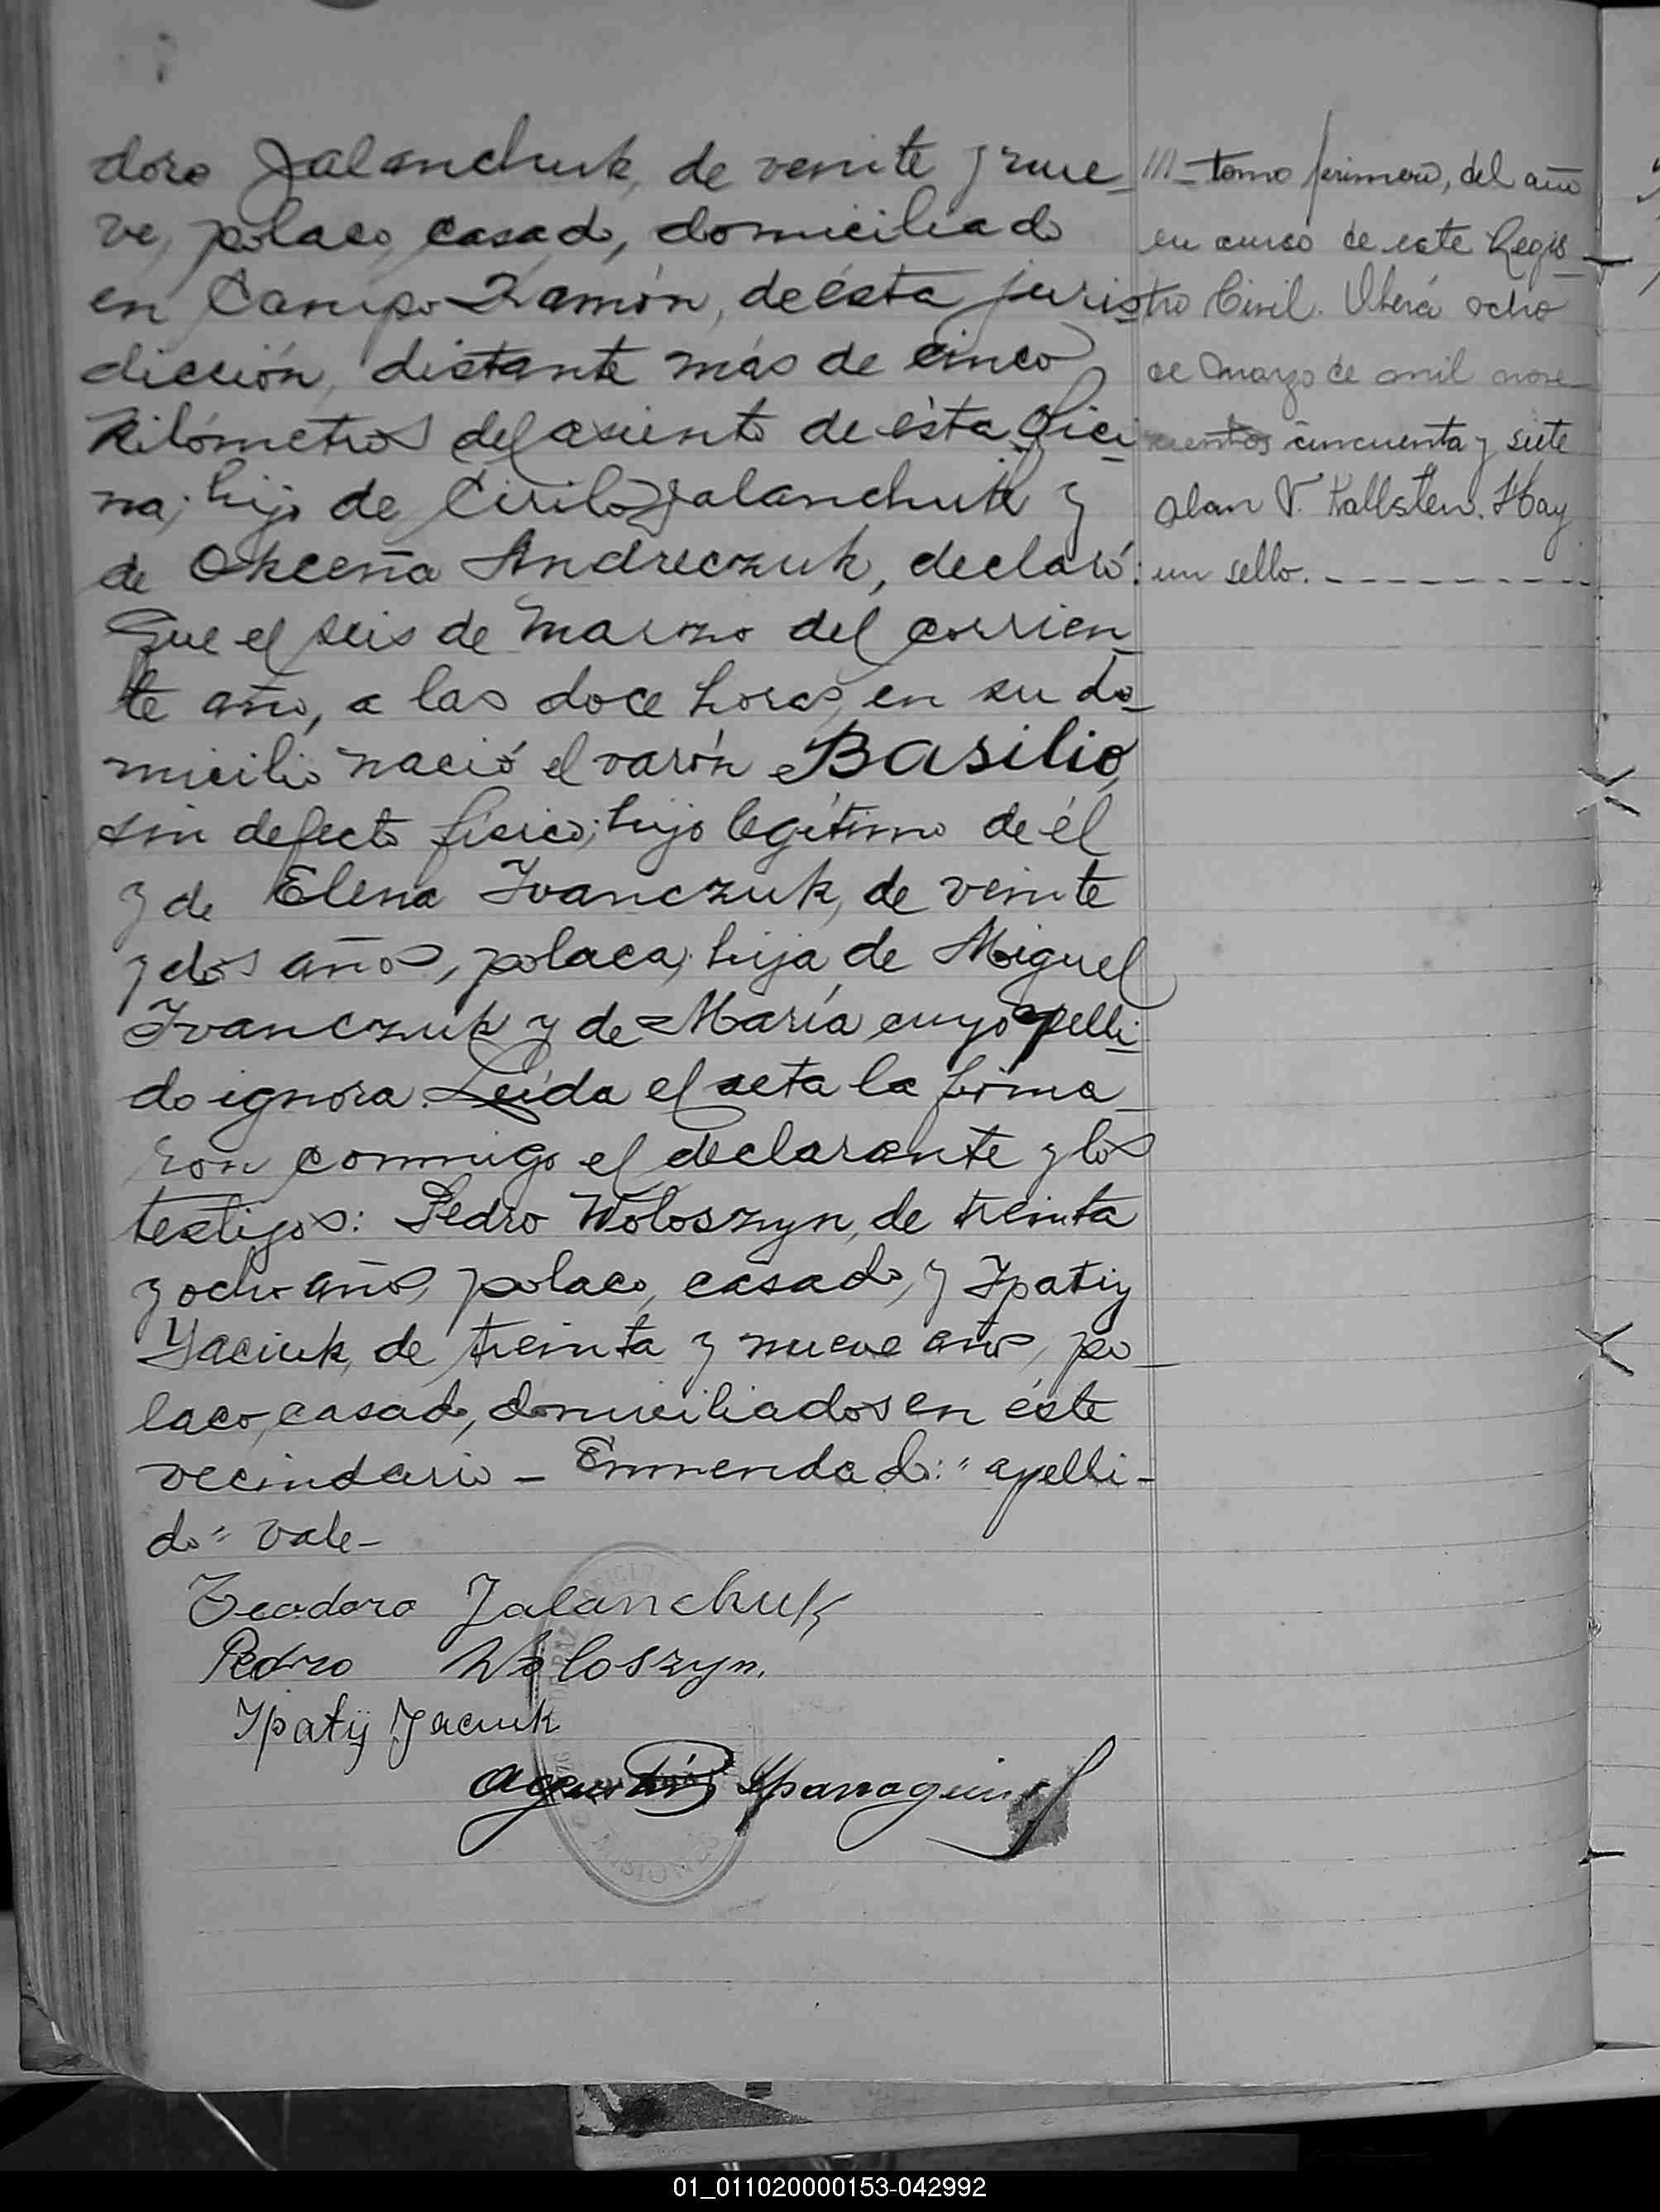 doro Jalanchuk, de veinte y nue-
ve, polaco, casado, domiciliado
en Campo Ramón, de ésta juris-
dicción, distante más de cinco
kilómetros del asiento de ésta Ofici-
na; hijo de Cirilo Jalanchuk y
de Okceña Andreczuk, declaró:
Que el seis de Marzo del corrien-
te año, a las doce horas, en su do-
micilio nació el varón Basilio,
sin defecto físico; hijo legítimo de él
y de Elena Ivanczuk, de veinte
y dos años, polaca; hija de Miguel
Ivanczuk y de María cuyo apelli-
do ignora. Leída el acta la firma-
ron conmigo el declarante y los
testigos: Pedro Woloszyn, de treinta
y ocho años, polaco, casado, y Ipatiy
Yaciuk, de treinta y nueve años, po-
laco, casado, domiciliados en éste
vecindario - Enmendado: "apelli-
do" vale-
Teodoro Jalanchuk
Pedro Woloszyn.
Ipatij Jaciuk
MISIONES
/// - tomo primero, del año
en curso de este Regis-
tro Civil. Oberá ocho
de Marzo de mil nove-
cientos cincuenta y siete
Alan V. Kallsten. Hay
un sello. - - - - - - - - -
01_011020000153-042992